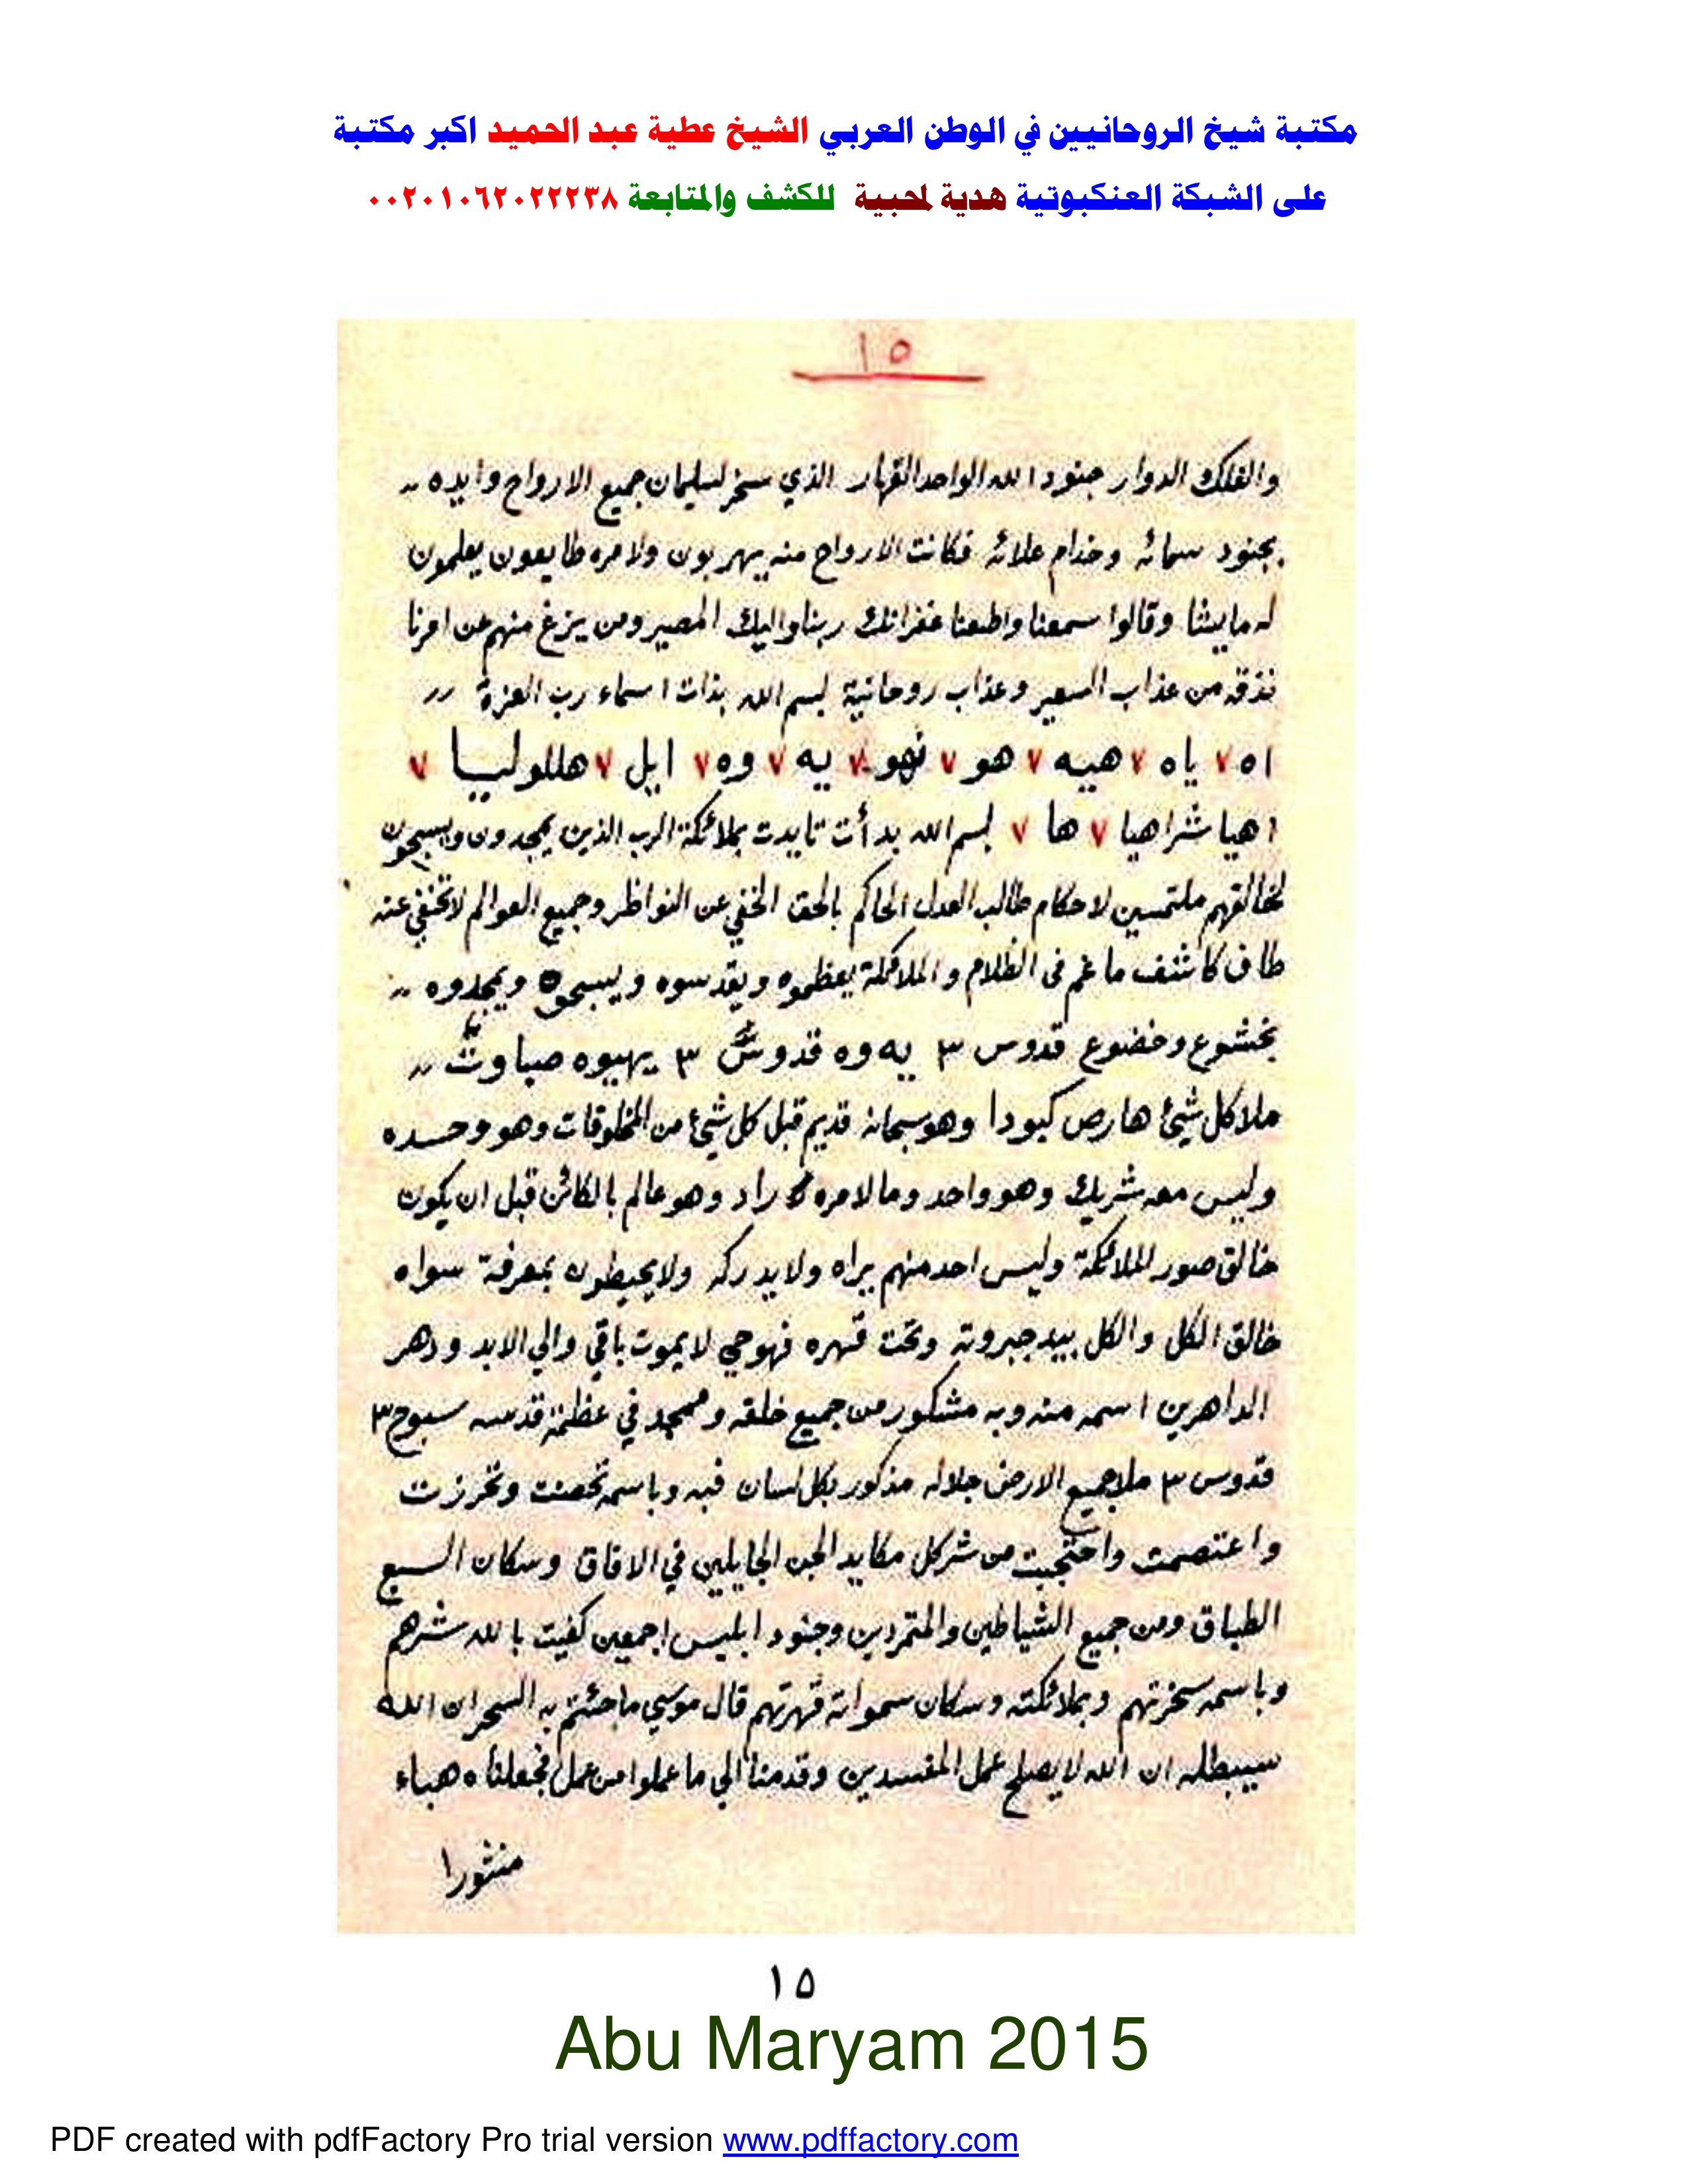 مكتبة شيخ الروحانيين في الوطن العربي الشيخ عطية عبد الحميد اكبر مكتبة
على الشبكة العنكبوتية هدية لمحبية للكشف والمتابعة ٠٠٢٠١٠٦٢٠٢٢٢٣٨
١٥
والفلك الدوار جنود الله الواحد القهار الذي سخر لسليمان جميع الارواح وايده
بجنود سمائه وخدام علائه فكانت الارواح منه يهربون ولامره طايعون يعلمون
له ما يشا وقالوا سمعنا واطعنا غفرانك ربنا واليك المصير ومن يزغ منهم عن امرنا
نذقه من عذاب السعير وعذاب روحانية بسم الله بذات اسماء رب العزة
اه ٧ ياه ٧ هيه ٧ هو ٧ نهو ٧ يه ٧ وه ٧ ايل ٧ هللوليا ٧
اهيا شراهيا ٧ ها ٧ بسم الله بدأت تايدت بملائكة الرب الذين يمجدون ويسبحون
لخالقهم ملتمسين لاحكام طالب العدل الحاكم بالحق الخفي عن النواظر وجميع العوالم لا تختفي عنه
طاف كاشف ما غم فى الظلام والملائكة يعظموه ويقدسوه ويسبحوه ويمجدوه
بخشوع وخضوع قدوس ٣ يه وه قدوش ٣ يهيوه صباوت
ملا كل شيئ هارص كبودا وهو سبحانه قديم قبل كل شيئ من المخلوقات وهو وحده
وليس معه شريك وهو واحد وما لامره راد وهو عالم بالكائن قبل ان يكون
خالق صور الملائكة وليس احد منهم يراه ولا يدركه ولا يحيطون بمعرفة سواه
خالق الكل والكل بيد جبروته وتحت قهره فهو حي لا يموت باقي والي الابد ودهر
الداهرين اسمه منه وبه مشكور من جميع خلقه وممجد في عظمة قدسه سبوح ٣
قدوس ٣ ملا جميع الارض جلاله مذكور بكل لسان فبه وباسمه تحصنت وتحرزت
واعتصمت واحتجبت من شر كل مكايد الجن الجايلين في الافاق وسكان السبع
الطباق ومن جميع الشياطين والمتمردين وجنود ابليس اجمعين كفيت بالله شرهم
وباسمه سخرتهم وبملائكته وسكان سمواته قهرتهم قال موسي ما جئتم به السحر ان الله
سيبطله ان الله لا يصلح عمل المفسدين وقدمنا الي ما عملوا من عمل فجعلناه هباء
منثورا
١٥
Abu Maryam 2015
PDF created with pdfFactory Pro trial version www.pdffactory.com